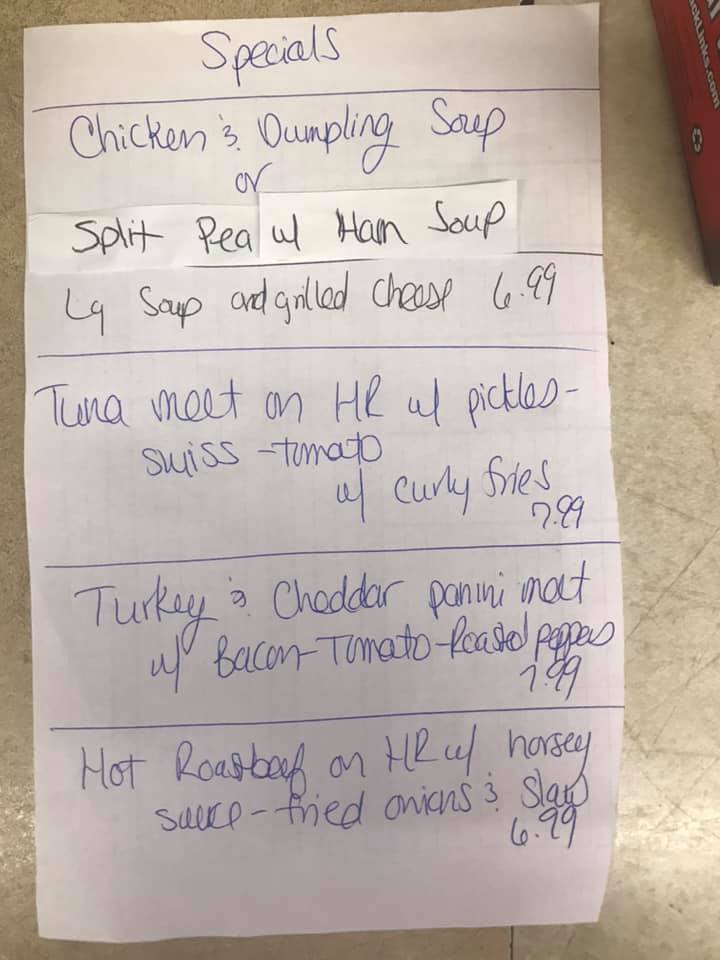 Specials
Chicken & Dumpling Soup
or
Split Pea w/ Ham Soup
Lg Soup and grilled cheese 6.99
Tuna melt on HR w/ pickles-
swiss -tomato
w/ curly fries
7.99
Turkey & Cheddar panini melt
w/ Bacon-Tomato-Roasted peppers
7.99
Hot Roastbeef on HR w/ horsey
sauce-fried onions & Slaw
6.99